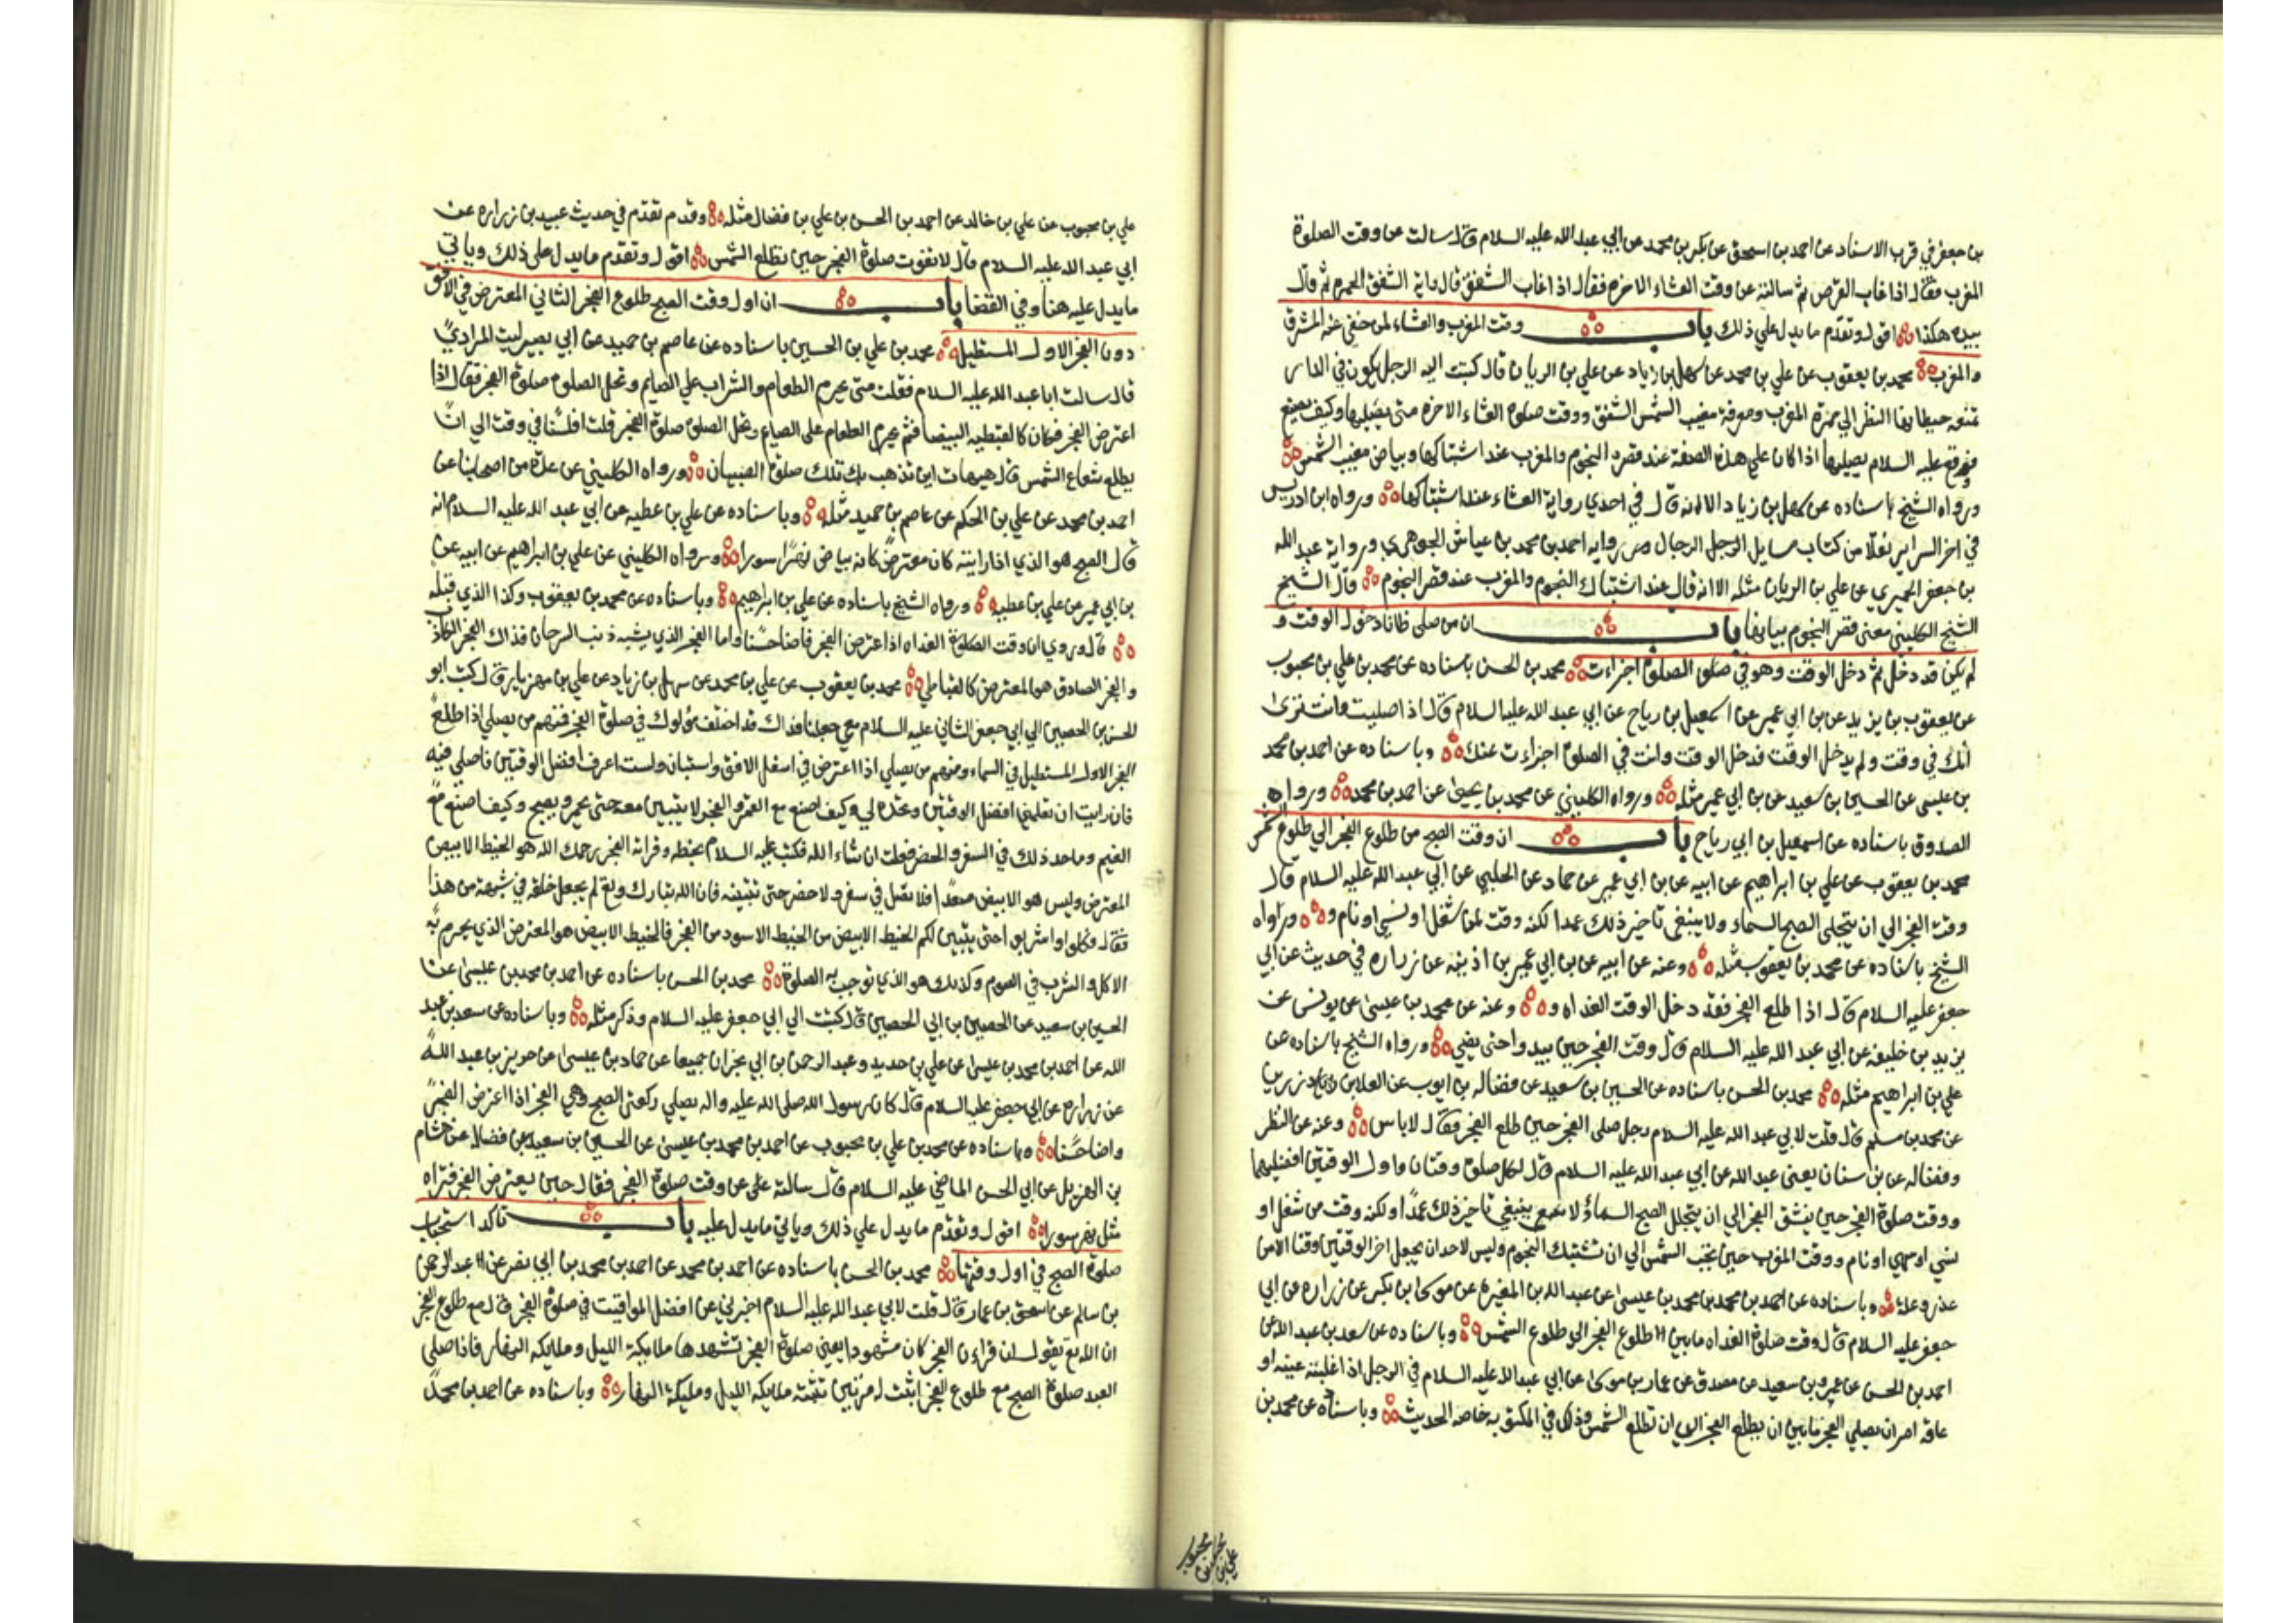 بن جعفر في قرب الاسناد عن احمد بن اسحق عن بكر بن محمد عن ابي عبد الله عليه السلام قال سالته عن وقت الصلوة
المغرب فقال اذا غاب القرص ثم سالته عن وقت العشاء الاخره فقال اذا غاب الشفق قال واية الشفق الحمره ثم وقال
بيده هكذا اقول وتقدم ما يدل علي ذلك باب وقت المغرب والعشاء لمن خفي عنه المشرق
والمغرب محمد بن يعقوب عن علي بن محمد عن سهل بن زياد عن علي بن الريان قال كتبت اليه الرجل يكون في الدار
تمنعه حيطانها النظر الي حمرة المغرب ومعرفة مغيب الشمس الشفق ووقت صلوة العشاء الاخره متى يصليها وكيف يصنع
فوقع عليه السلام يصليها اذا كان علي هذه الصفة عند قصرة النجوم والمغرب عند اشتباكها وبياض مغيب الشمس
ورواه الشيخ باسناده عن سهل بن زياد الا انه قال في احدي رواية العشاء عند اشتباكها ورواه ابن ادريس
في اخر السراير نقلا من كتاب مسايل الرجل الرجال ومن رواية احمد بن محمد بن عياش الجوهري ورواية عبد الله
بن جعفر الحميري عن علي بن الريان مثله الا انه قال عند اشتباك النجوم والمغرب عند قصر النجوم قال الشيخ
الشيخ الكليني معنى قصر النجوم بيانها باب ان من صلى ظانا دخول الوقت و
لم يكن قد دخل ثم دخل الوقت وهو في صلوة الصلوة اجزاءت محمد بن الحسن باسناده عن محمد بن علي بن محبوب
عن يعقوب بن يزيد عن بن ابي عمير عن اسمعيل بن رياح عن ابي عبد الله عليه السلام قال اذا صليت وانت ترى
انك في وقت ولم يدخل الوقت فدخل الوقت وانت في الصلوة اجزاءت عنك وباسناده عن احمد بن محمد
بن عيسى عن الحسين بن سعيد عن بن ابي عمير مثله ورواه الكليني عن محمد بن يحيى عن احمد بن محمد ورواه
الصدوق باسناده عن اسمعيل بن ابي رياح باب ان وقت الصبح من طلوع الفجر الي طلوع الشمس
محمد بن يعقوب عن علي بن ابراهيم عن ابيه عن بن ابي عمير عن حماد عن الحلبي عن ابي عبد الله عليه السلام قال
وقت الفجر الي ان يتجلى الصبح السماء ولا ينبغي تاخير ذلك عمدا لكنه وقت لمن شغل او نسي او نام و ورواه
الشيخ باسناده عن محمد بن يعقوب مثله وعنه عن ابيه عن بن ابي عمير بن اذينه عن زراره في حديث عن ابي
جعفر عليه السلام قال اذا طلع الفجر فقد دخل الوقت الغداه و وعنه عن محمد بن عيسى عن يونس عن
يزيد بن خليفه عن ابي عبد الله عليه السلام قال وقت الفجر حين يبدوا حتى يضي ورواه الشيخ باسناده عن
علي بن ابراهيم مثله محمد بن الحسن باسناده عن الحسين بن سعيد عن فضاله بن ايوب عن العلا بن رزين
عن محمد بن مسلم قال قلت لابي عبد الله عليه السلام رجل صلى الفجر حين طلع الفجر فقال لاباس وعنه عن النظر
وفضاله عن بن سنان يعني عبد الله عن ابي عبد الله عليه السلام قال لكل صلوة وقتان واول الوقتين افضلهما
ووقت صلوة الفجر حين ينشق الفجر الي ان يتجلل الصبح السماء ولا ينبغي تاخير ذلك عمدا ولكنه وقت من شغل او
نسي او سهي او نام ووقت المغرب حين تجب الشمس الي ان تشتبك النجوم وليس لاحد ان يجعل اخر الوقتين وقتا الا من
عذر وعلة وباسناده عن احمد بن محمد بن محمد بن عيسى عن عبد الله بن المغيره عن موسى بن بكر عن زراره عن ابي
جعفر عليه السلام قال وقت صلوة الغداه ما بين طلوع الفجر الي طلوع الشمس وباسناده عن سعد بن عبد الله عن
احمد بن الحسن عن عمرو بن سعيد عن مصدق عن عمار بن موسى عن ابي عبد الله عليه السلام في الرجل اذا غلبته عينه او
عاقه امر ان يصلي الفجر ما بين ان يطلع الفجر الي ان تطلع الشمس وذلك في المكتوبه خاصه الحديث وباسناده عن محمد بن
علي بن محبوب
علي بن محبوب عن علي بن خالد عن احمد بن الحسن بن علي بن فضال مثله وقدم تقدم في حديث عبيد بن زراره عن
ابي عبد الله عليه السلام قال لا تفوت صلوة الفجر حين تطلع الشمس اقول وتقدم ما يدل على ذلك وياتي
ما يدل عليه هنا وفي القضا باب ان اول وقت الصبح طلوع الفجر الثاني المعترض في الافق
دون الفجر الاول المستطيل محمد بن علي بن الحسين باسناده عن عاصم بن حميد عن ابي بصير ليث المرادي
قال سالت ابا عبد الله عليه السلام فقلت متى يحرم الطعام والشراب علي الصايم وتحل الصلوة صلوة الفجر فقال اذا
اعترض الفجر فكان كالقبطيه البيضا فثم يحرم الطعام على الصيام وتحل الصلوة صلوة الفجر قلت افلسنا في وقت الي ان
يطلع شعاع الشمس قال هيهات اين تذهب بك تلك صلوة الصبيان ورواه الكليني عن عدة من اصحابنا عن
احمد بن محمد عن علي بن الحكم عن عاصم بن حميد مثله وباسناده عن علي بن عطيه عن ابي عبد الله عليه السلام انه
قال الصبح هو الذي اذا رايته كان معترضا كانه بياض نهر سورا ورواه الكليني عن علي بن ابراهيم عن ابيه عن
بن ابي عمير عن علي بن عطيه ورواه الشيخ باسناده عن علي بن ابراهيم وباسناده عن محمد بن يعقوب وكذا الذي قبله
قال وروي ان وقت الصلوة الغداه اذا اعترض الفجر فاضا حسنا واما الفجر الذي يشبه ذنب السرحان فذاك الفجر الكاذب
والفجر الصادق هو المعترض كالقباطي محمد بن يعقوب عن علي بن محمد عن سهل بن زياد عن علي بن مهزيار قال كتب ابو
الحسن بن الحصين الي ابي جعفر الثاني عليه السلام معي جعلت فداك قد اختلف مولوك في صلوة الفجر فمنهم من يصلي اذا طلع
الفجر الاول المستطيل في السماء ومنهم من يصلي اذا اعترض في اسفل الافق واستبان ولست اعرف افضل الوقتين فاصلي فيه
فان رايت ان تعلمني افضل الوقتين وتحده لي وكيف اصنع مع القمر والفجر لا يتبين معه حتى يحمر ويصبح وكيف اصنع مع
الغيم وما حد ذلك في السفر والحضر فعلت ان شاء الله فكتب عليه السلام بخطه وقراته الفجر يرحمك الله هو الخيط الابيض
المعترض وليس هو الابيض صعدا فلا تصل في سفر ولا حضر حتى تتبينه فان الله تبارك وتع لم يجعل خلقه في شبهة من هذا
فقال وكلوا واشربوا حتى يتبين لكم الخيط الابيض من الخيط الاسود من الفجر فالخيط الابيض هو المعترض الذي يحرم به
الاكل والشرب في الصوم وكذلك هو الذي توجب به الصلوة محمد بن الحسن باسناده عن احمد بن محمد بن عيسى عن
الحسين بن سعيد عن الحصين بن ابي الحصين قال كتبت الي ابي جعفر عليه السلام وذكر مثله وباسناده عن سعد بن عبد
الله عن احمد بن محمد بن عيسى عن علي بن حديد وعبد الرحمن بن ابي نجران جميعا عن حماد بن عيسى عن حريز بن عبد الله
عن زراره عن ابي جعفر عليه السلام قال كان رسول الله صلى الله عليه واله يصلي ركعتي الصبح وهي الفجر اذا اعترض الفجر
واضا حسنا وباسناده عن محمد بن علي بن محبوب عن احمد بن محمد بن عيسى عن الحسين بن سعيد عن فضاله عن هشام
بن الهزيل عن ابي الحسن الماضي عليه السلام قال سالته علي عن وقت صلوة الفجر فقال حين يعترض الفجر فتراه
مثل نهر سورا اقول وتقدم ما يدل علي ذلك وياتي ما يدل عليه باب تاكد استحباب
صلوة الصبح في اول وقتها محمد بن الحسن باسناده عن احمد بن محمد عن احمد بن محمد بن ابي نصر عن عبد الرحمن
بن سالم عن اسحق بن عمار قال قلت لابي عبد الله عليه السلام اخبرني عن افضل المواقيت في صلوة الفجر قال مع طلوع الفجر
ان الله تع يقول ان قراءن الفجر كان مشهودا يعني صلوة الفجر تشهدها ملايكة الليل وملايكه النهار فاذا صلى
العبد صلوة الصبح مع طلوع الفجر اثبت له مرتين تثبته ملايكه الليل ومليكة النهار وباسناده عن احمد بن محمد